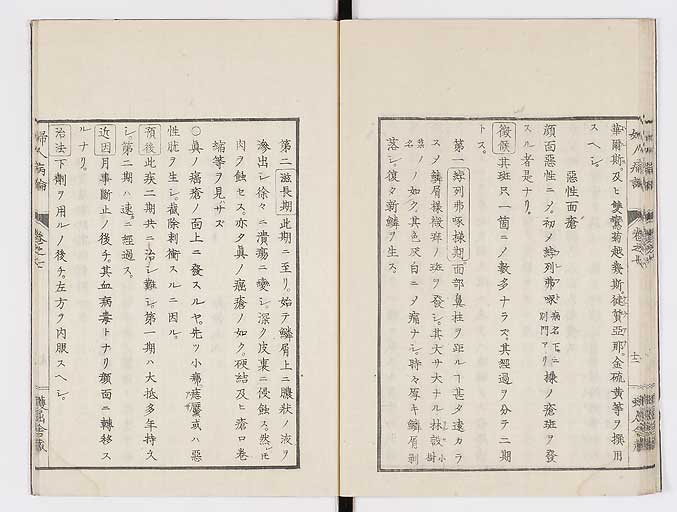 華爾斯及ヒ雙鸞菊越幾斯徒賛亞那金硫黄等ヲ撰用
スヘシ
惡性面瘡
顔面惡性ニメ初メ綷列弗啄病名下ニ別門アリ様ノ瘡斑ヲ發
スル者是ナリ
徴候其斑只一箇ニメ數多ナラス其經過ヲ分テ二期
トス
第一綷列弗啄様期面部鼻柱ヲ距ルヿ甚タ遠カラ
スメ鱗屑様微痒ノ斑ヲ發シ其大サ大ナル林設小樹ノ名
ノ如ク其色灰白ニメ痛ナシ時々厚キ鱗屑剝
落シ復タ新鱗ヲ生ス
第二滋長期此期ニ至リ始テ鱗屑上ニ膿狀ノ液ヲ
滲出シ徐々ニ潰瘍ニ變シ深ク皮裏ニ侵蝕ス然𪜈
肉ヲ蝕セス亦タ眞ノ癌瘡ノ如ク硬結及ヒ瘡口卷
縮等ヲ見サズ
〇眞ノ癌瘡ノ面上ニ發スルヤ先ツ小瘤痣黶或ハ惡
性疣ヲ生シ截除刺衝スルニ因ル
預後此疾二期共ニ治シ難シ第一期ハ大抵多年持久
シ第二期ハ速ニ經過ス
近因月事斷止ノ後チ其血病毒トナリ顔面ニ轉移ス
ルナリ
治法下劑ヲ用ルノ後チ左方ヲ内服スヘシ
婦人病論
卷之七